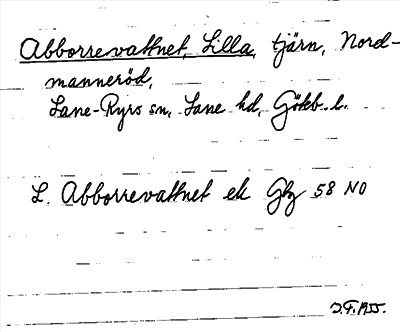 Abborrevattnet, Lilla, tjärn, Nord-
manneröd,
Lane-Ryrs sn, Lane hd, Götb. l.
L. Abborrevattnet ek Gbg 58 NO
J.F. 1955.